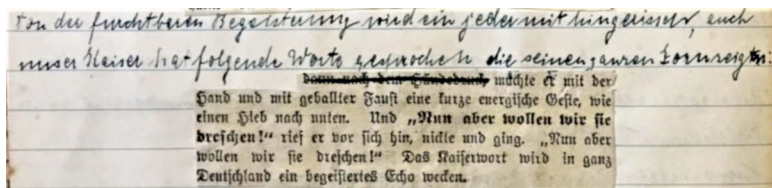 Von der furchtbaren Begeisterung wird ein jeder mit hingerissen, auch
unser Kaiser hat folgende Worte gesprochen die seinen ganzen Zorn zeigten:
dann nach dem Händedruck machte er mit der
Hand und mit geballter Faust eine kurze energische Geste, wie
einen Hieb nach unten. Und „Nun aber wollen wir sie
dreschen!“ rief er vor sich hin, nickte und ging. „Nun aber
wollen wir sie dreschen!“ Das Kaiserwort wird in ganz
Deutschland ein begeistertes Echo wecken.